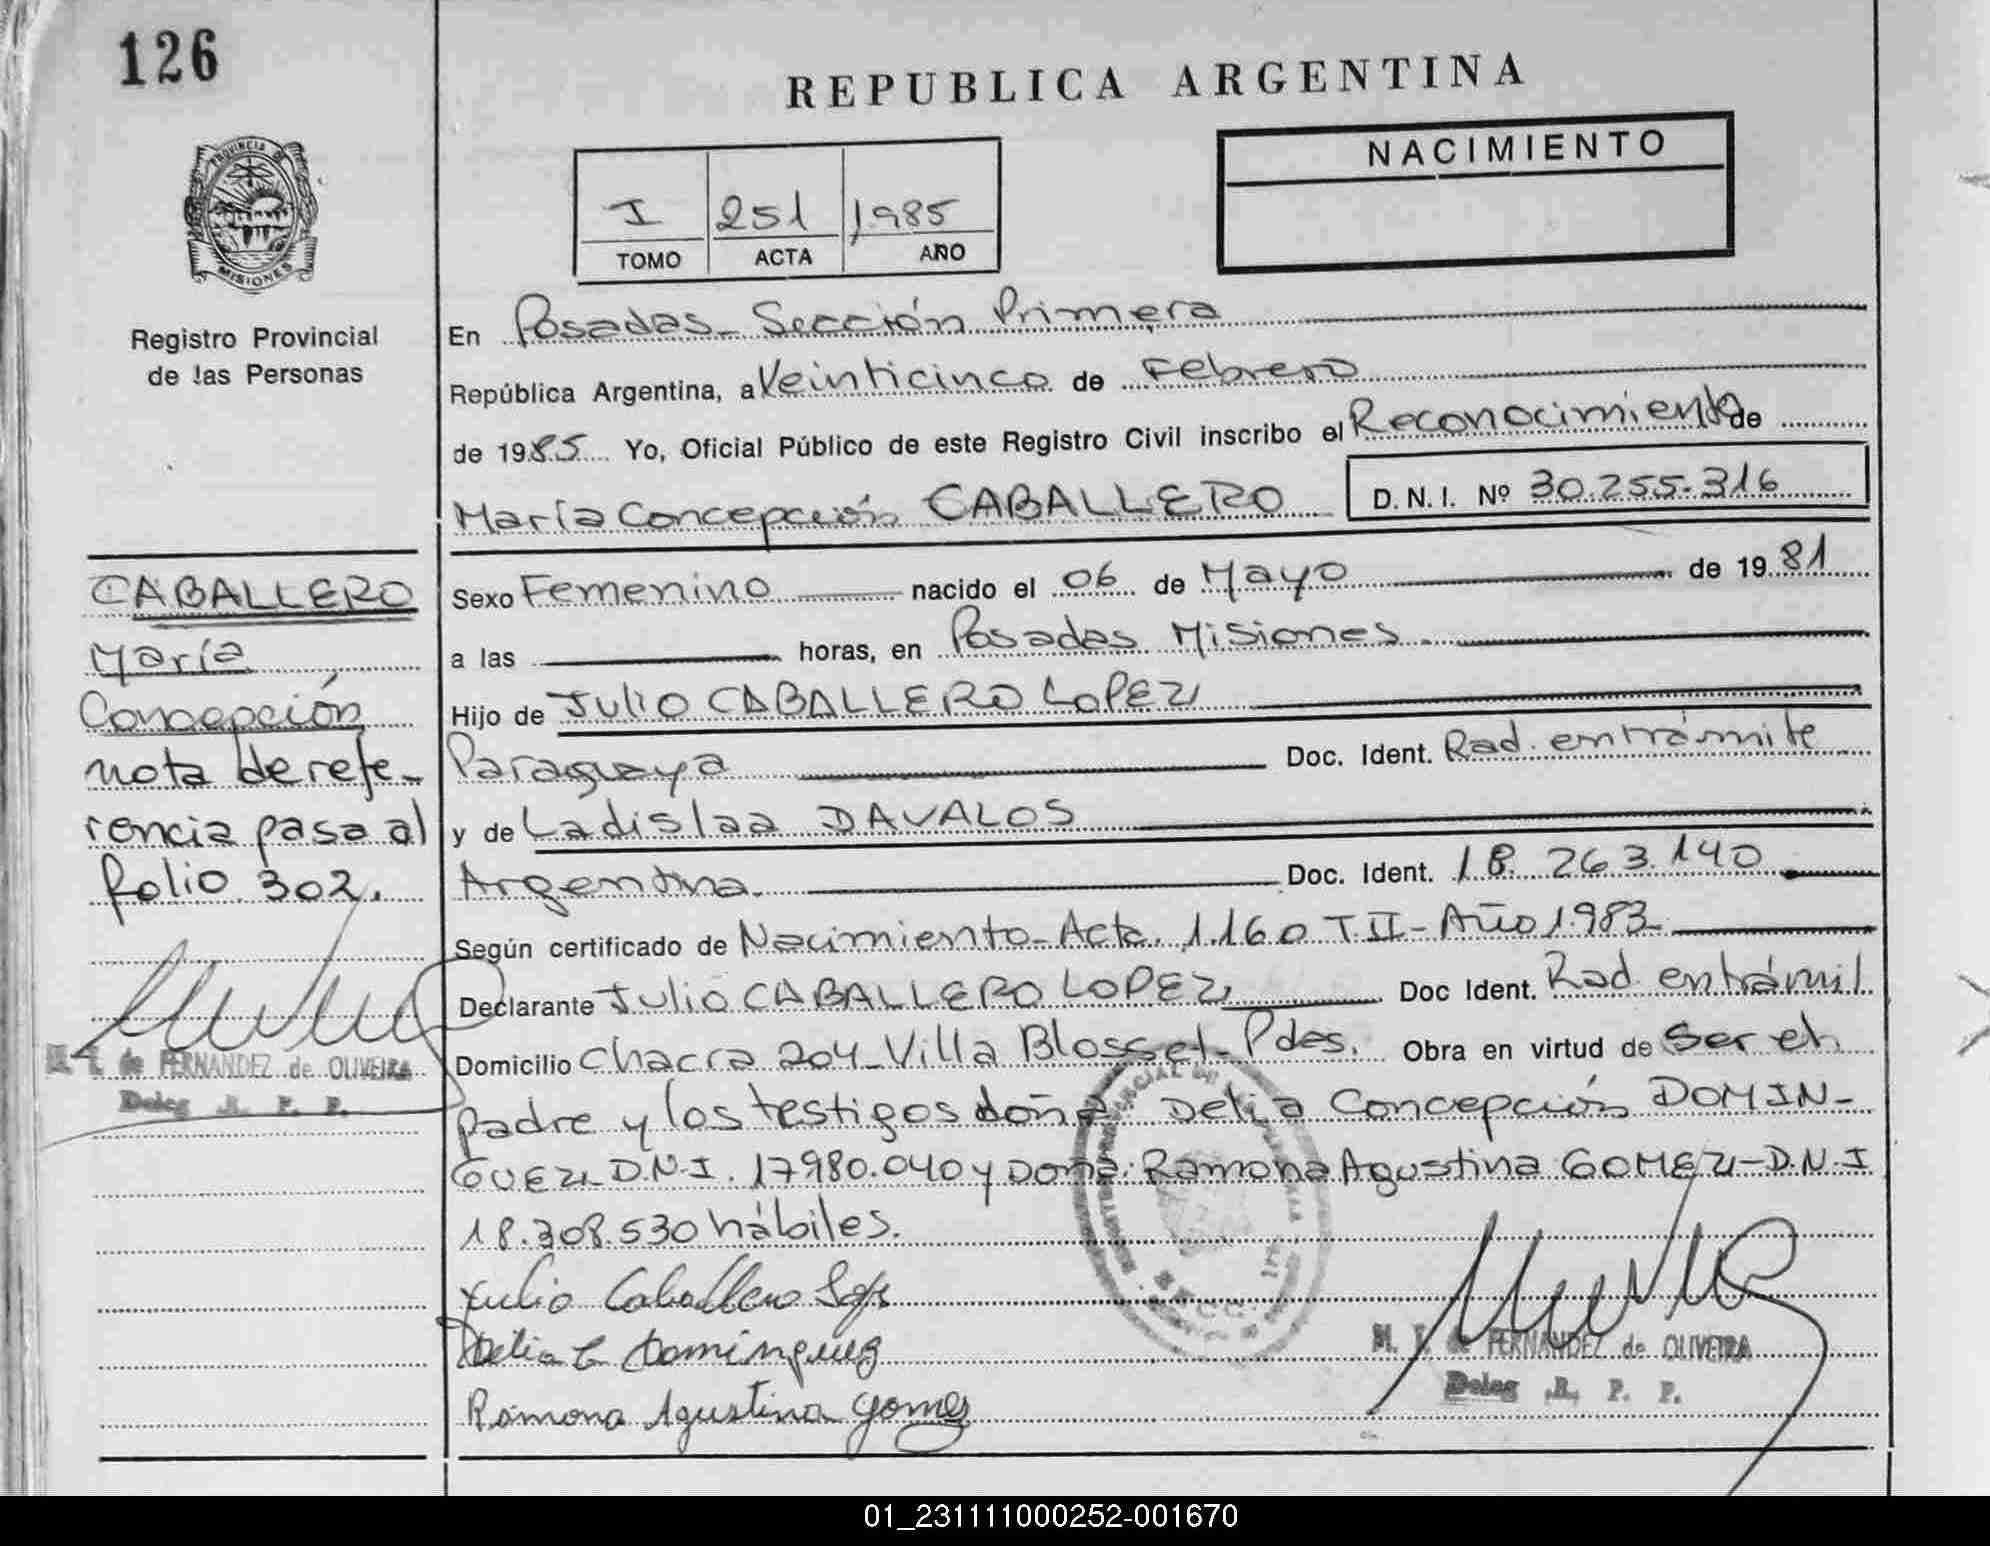 126
REPUBLICA ARGENTINA
NACIMIENTO
I 251 1.985
TOMO ACTA AÑO
PROVINCIA DE
MISIONES
Registro Provincial
de las Personas
En Posadas - Sección Primera
República Argentina, a Veinticinco de Febrero
de 1985 Yo, Oficial Público de este Registro Civil inscribo el Reconocimiento de
María Concepción CABALLERO D.N.I. Nº 30.255.316
CABALLERO
María
Concepción
nota de refe-
rencia pasa al
folio 302.
M. T. de FERNANDEZ de OLIVEIRA
Deleg R. P. P.
Sexo Femenino nacido el 06 de Mayo de 1981
a las horas, en Posadas Misiones
Hijo de Julio CABALLERO LOPEZ
Paraguaya Doc. Ident. Rad. en trámite
y de Ladislaa DAVALOS
Argentina. Doc. Ident. 18.263.140
Según certificado de Nacimiento - Acta. 1.160 T II - Año 1.983
Declarante Julio CABALLERO LOPEZ Doc Ident. Rad en trámit
Domicilio Chacra 204 - Villa Blosset - Pdas. Obra en virtud de Ser el
padre y los testigos doña Delia Concepción DOMIN-
GUEZ D.N.I. 17980.040 y Doña: Ramona Agustina GOMEZ - D.N.I
18.308.530 hábiles.
Julio Caballero
Delia C Dominguez
Ramona Agustina Gomez
M. T. de FERNANDEZ de OLIVEIRA
Deleg R. P. P.
01_231111000252-001670